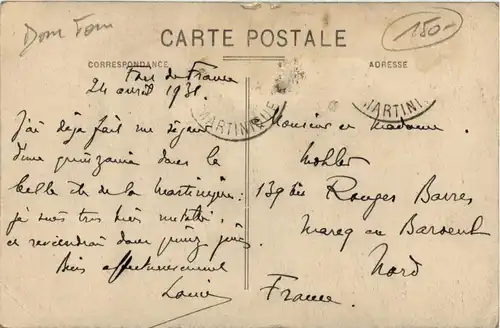 Dom Tom
150-
CARTE POSTALE
CORRESPONDANCE
ADRESSE
Fort de France
24 avril 1931.
MARTINIQUE
MARTINI
J'ai déjà fait un séjour
d'une quinzaine dans la
belle île de la Martinique :
je suis très bien
et reviendrai dans quinze jours
Bien affectueusement
Louise
Monsieur et Madame
Mohler
139 bis Rouges Barres
Marcq en Baroeul
Nord
France.